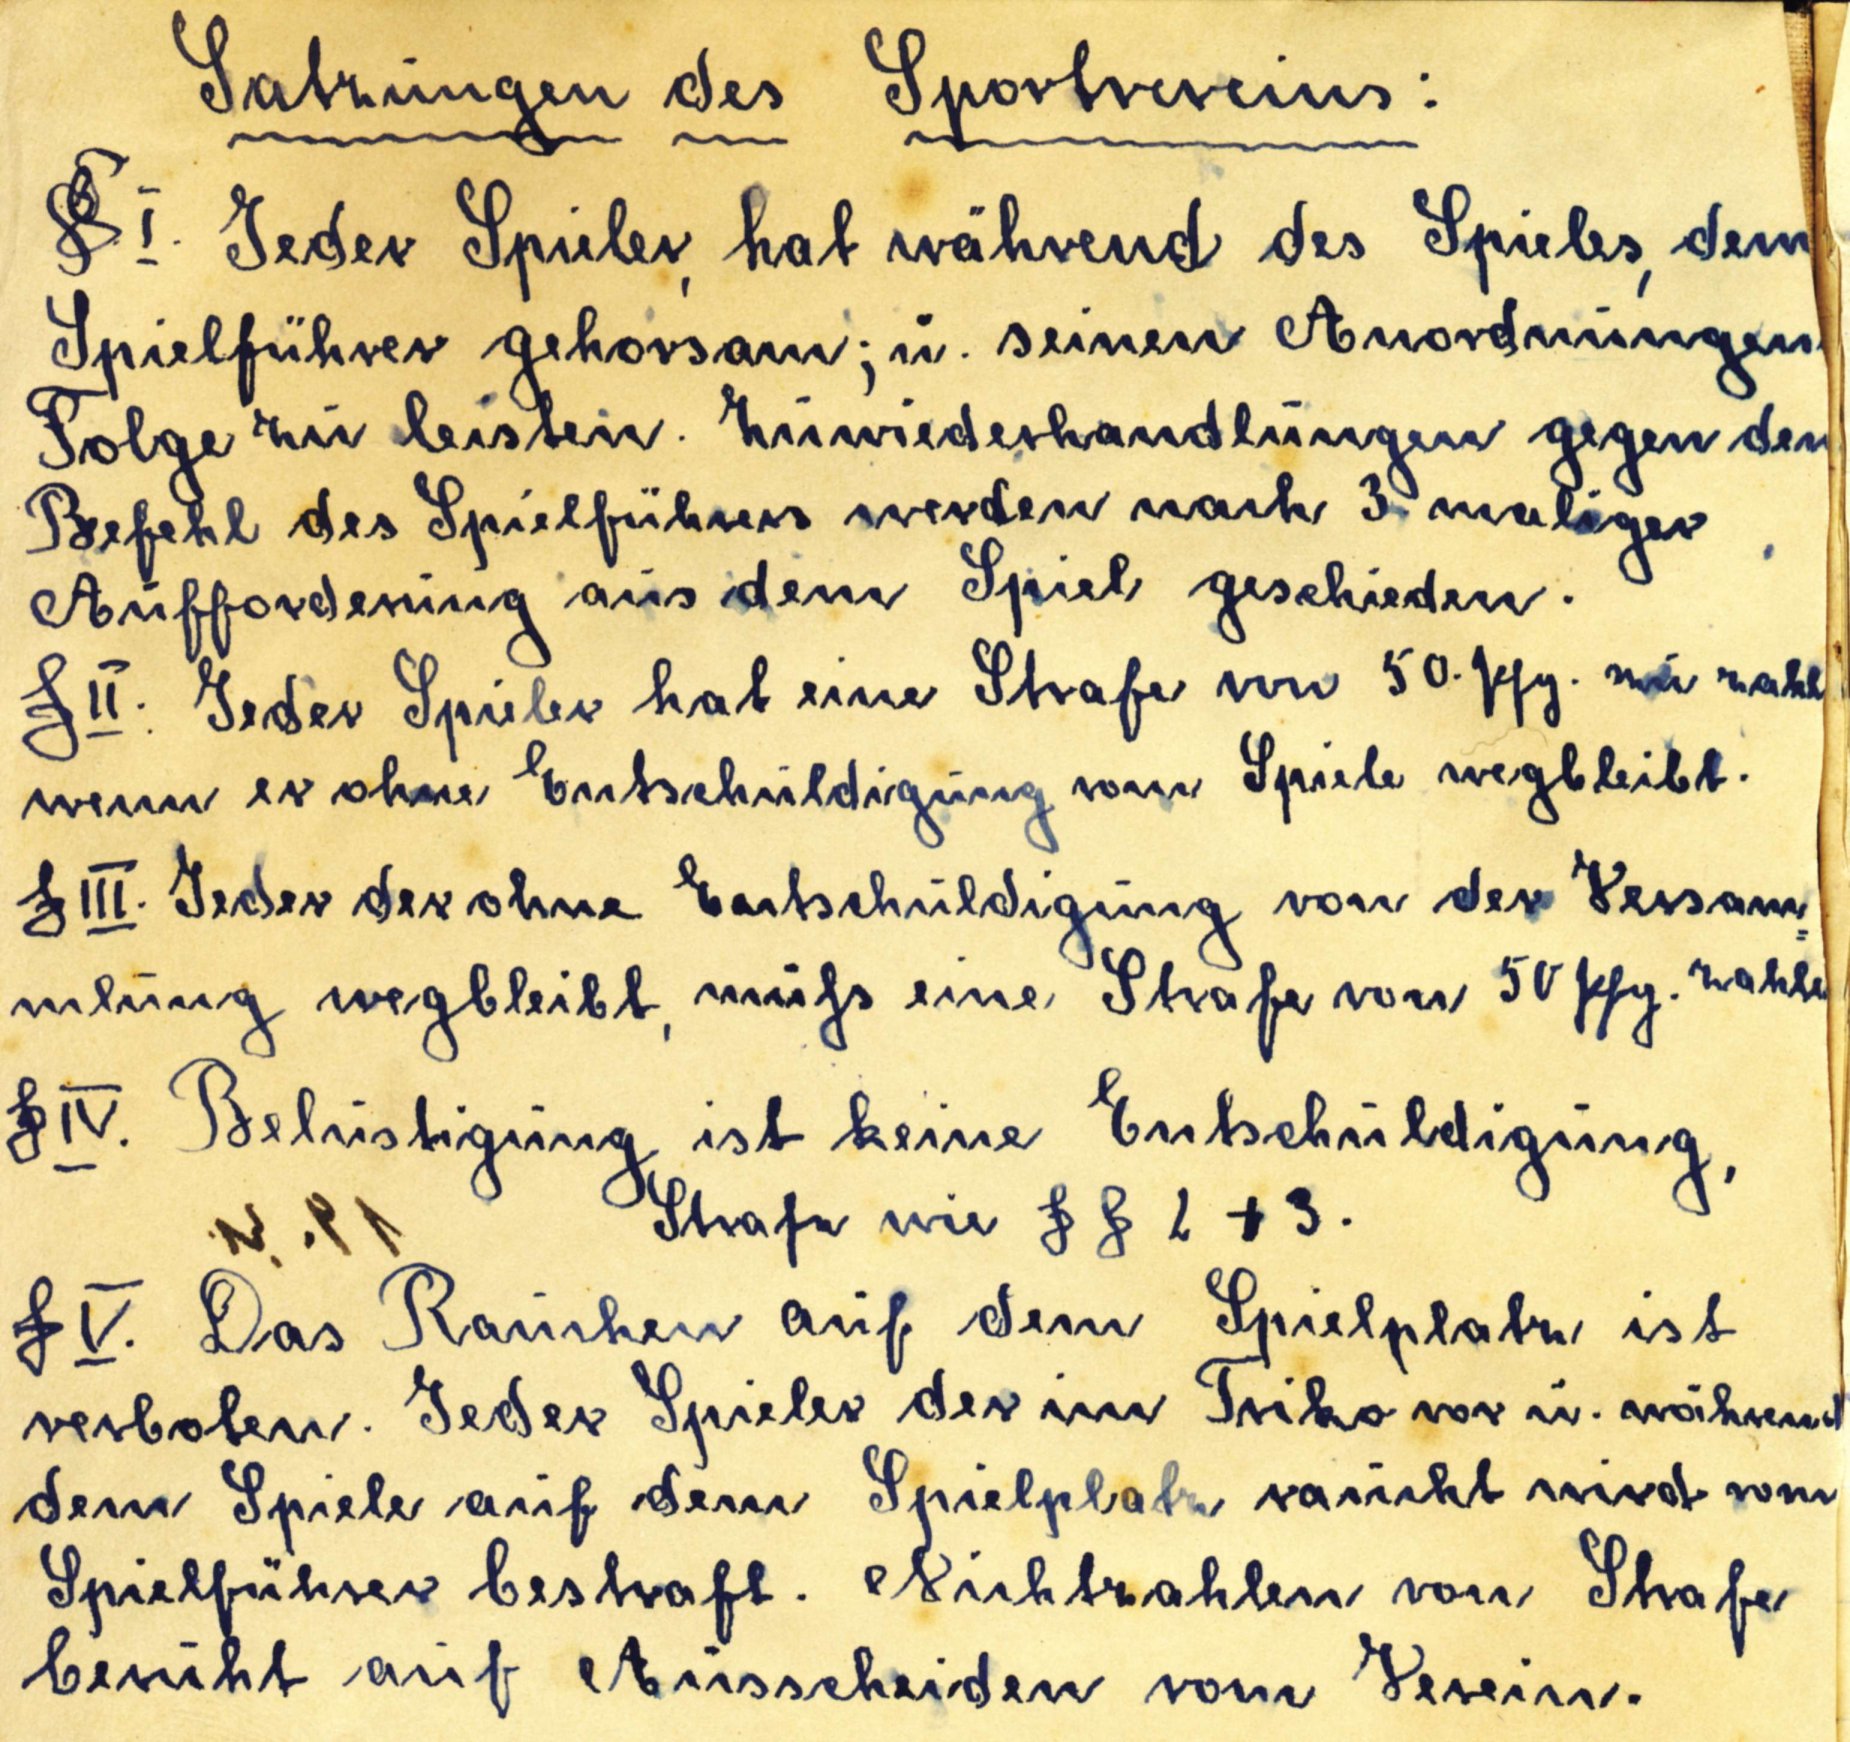 Satzungen des Sportvereins:
§ I. Jeder Spieler, hat während des Spieles, dem
Spielführer gehorsam; u. seinen Anordnungen
Folge zu leisten. Zuwiederhandlungen gegen den
Befehl des Spielführers werden nach 3. maliger
Aufforderung aus dem Spiel geschieden.
§ II. Jeder Spieler hat eine Strafe von 50. Pfg. zu zahl
wenn er ohne Entschuldigung vom Spiele wegbleibt.
§ III. Jeder der ohne Entschuldigung von der Versam=
mlung wegbleibt, muſs eine Strafe von 50 Pfg. zahle
§ IV. Belustigung ist keine Entschuldigung,
Strafe wie § § 2 + 3.
§ V. Das Rauchen auf dem Spielplatz ist
verboten. Jeder Spieler der im Triko vor u. während
dem Spiele auf dem Spielplatz raucht wird vom
Spielführer bestraft. Nichtzahlen von Strafe
beruht auf Ausscheiden vom Verein.